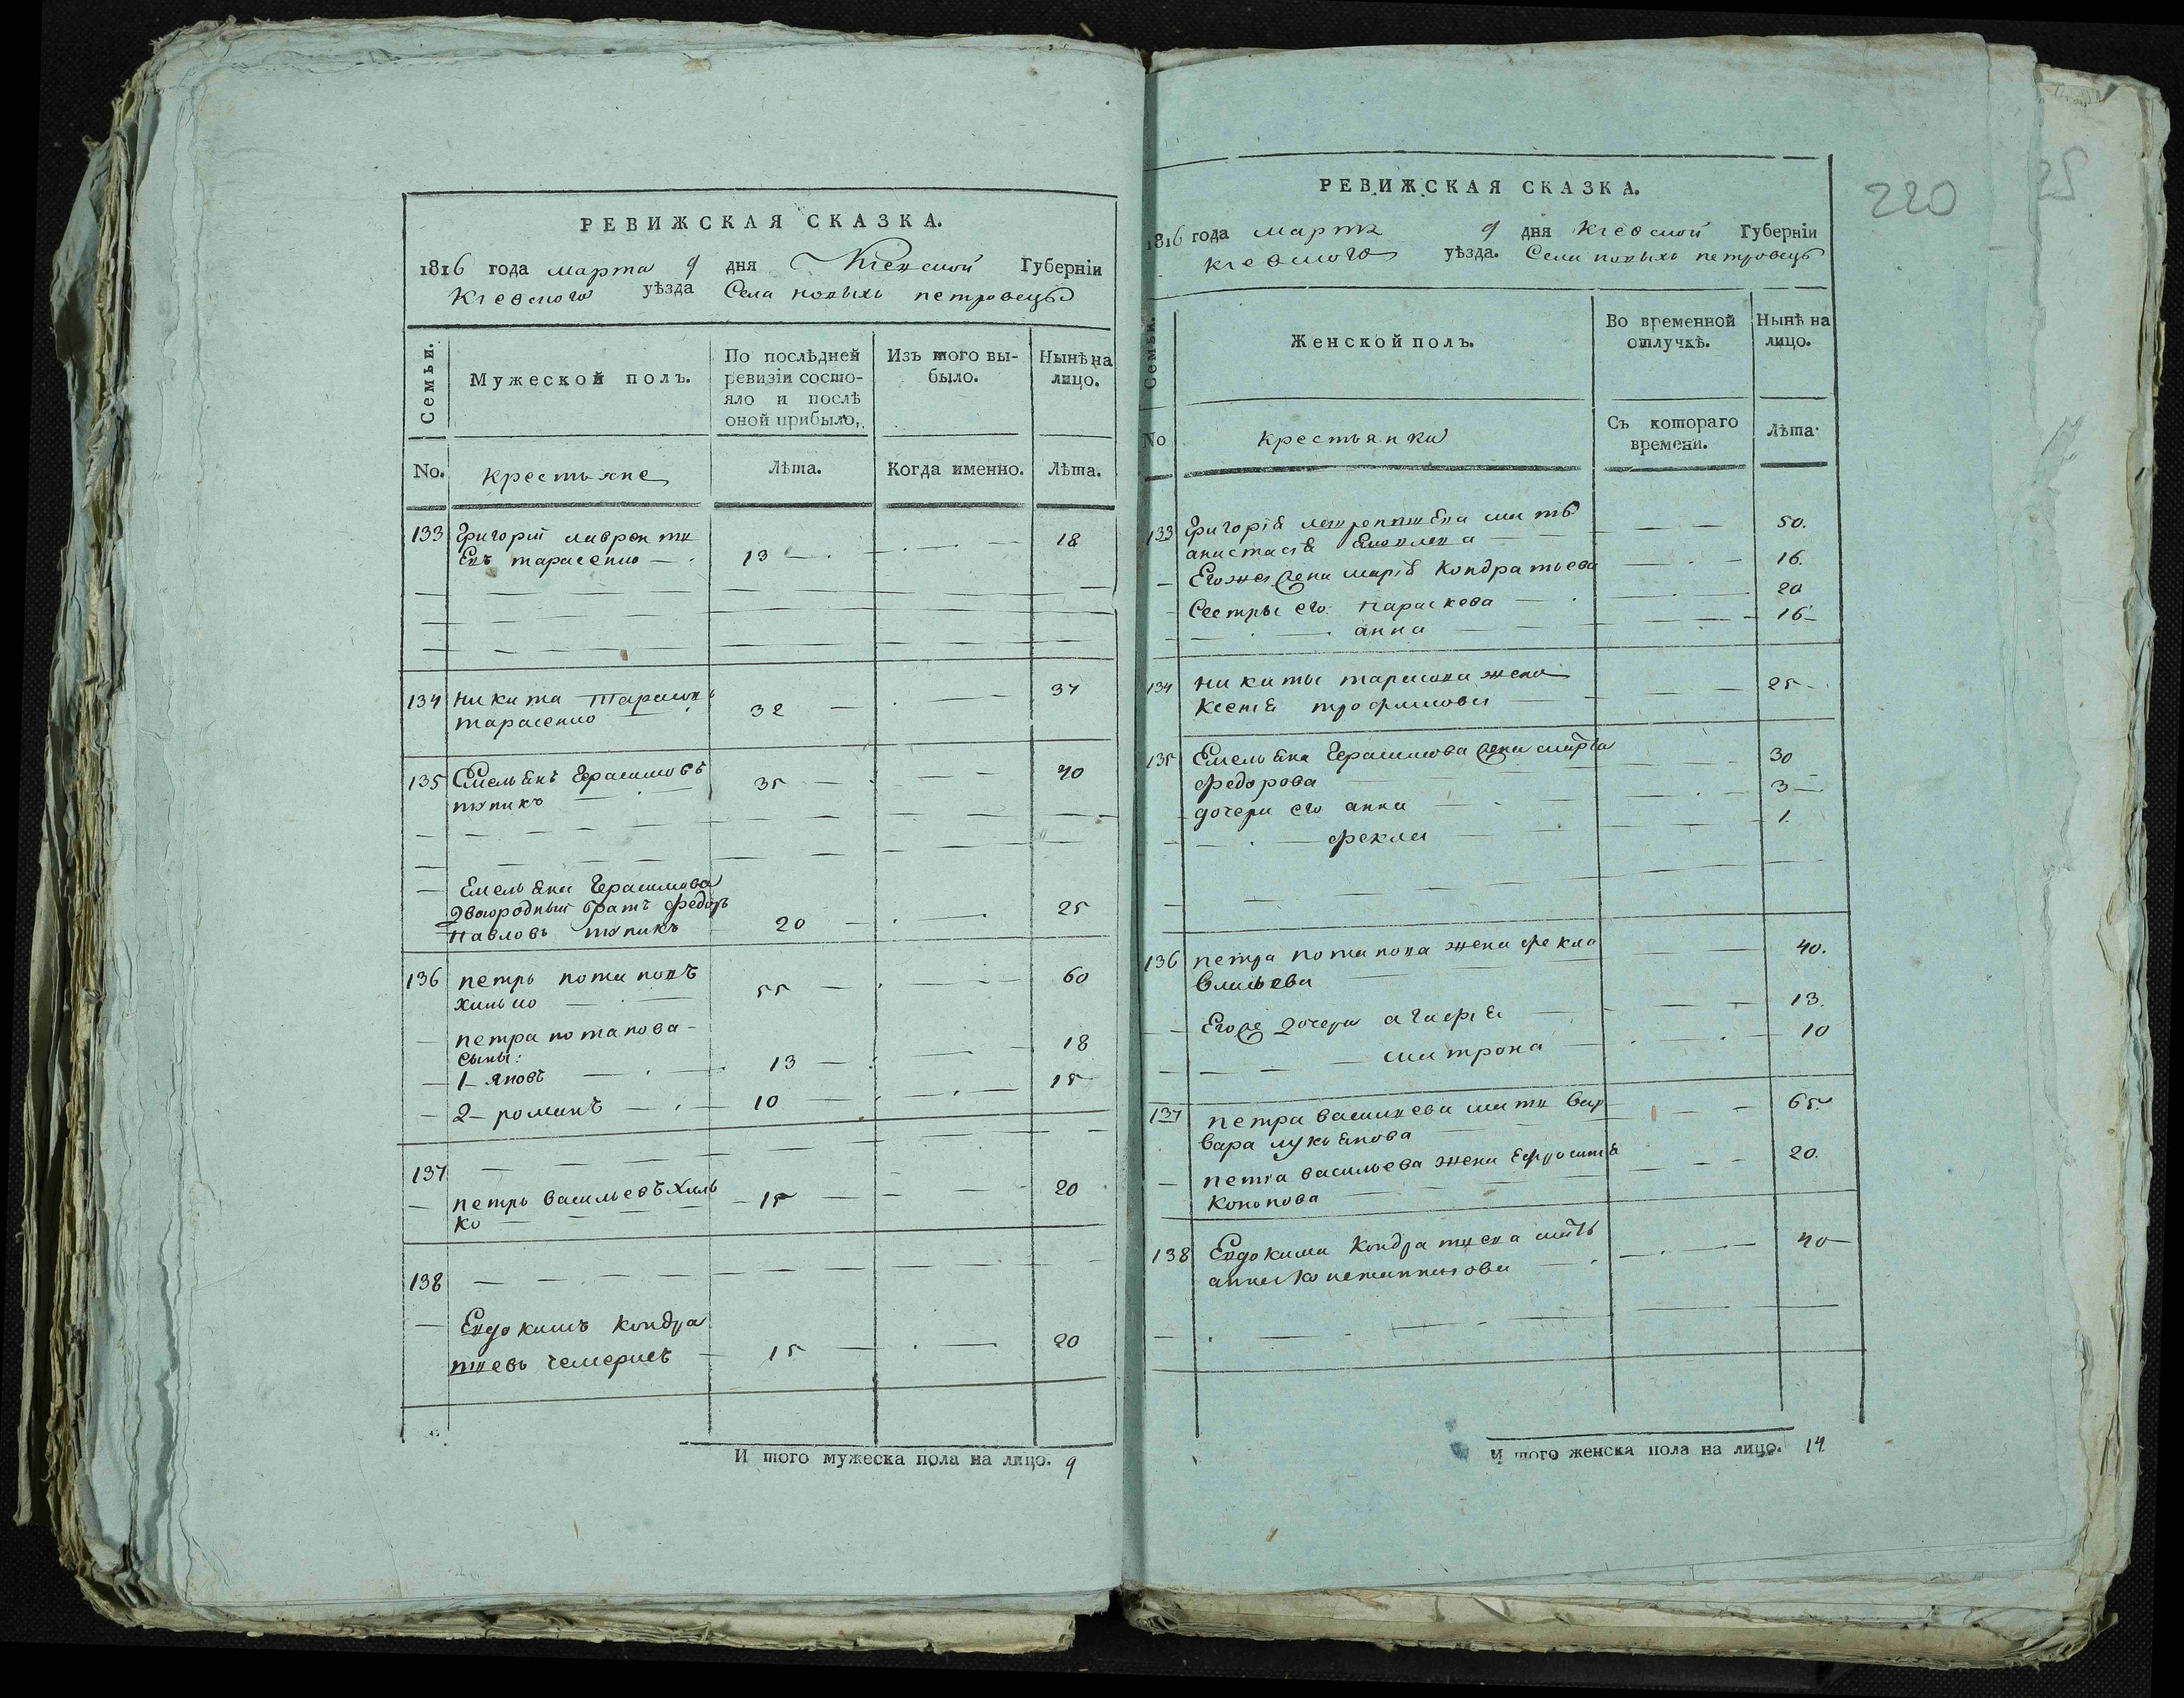 РЕВИЖСКАЯ СКАЗКА.
1816 года марта 9 дня Кіевской Губерніи
Кіевского уѣзда Села новыхъ петровецъ
Семьи.
Мужеской полъ.
По послѣдней ревизіи состо-
яло и послѣ
оной прибыло,
Изъ того вы-
было.
Нынѣ на
лицо.
No. крестьяне Лѣта. Когда именно. Лѣта.
133 Григорій лаврентi
Евъ тарасенко 13 18
134 никита тарасовъ 37
тарасенко 32
135 Емельянъ Герасимовъ 35 40
тупикъ
Емельяна Герасимова
Двоюродный братъ федоръ 25
павловъ тупикъ 20
136 петръ потаповъ 55 60
хилько
петра потапова
сыны: 18
1 яковъ 13
2 романъ 10 15
137
петръ васильевъ Хиль 15 20
ко
138
Евдокимъ Кондра
тьевъ чемерисъ 15 20
И того мужеска пола на лицо. 9
РЕВИЖСКАЯ СКАЗКА.
220
25
1816 года марта 9 дня Кіевской Губерніи
Кіевского уѣзда. Села новыхъ петровецъ
Семьи.
Женской полъ.
Во временной
отлучкѣ.
Нынѣ на
лицо.
No крестьянки
Съ котораго
времени.
Лѣта.
133 Григорія мать 50.
анастасія
Его жена марія Кондратьева 16.
Сестры его параскева 20
анна 16
134 никиты тарасова жена 25
Ксенія трофимова
135 Емельяна Герасимова жена марья 30
федорова
дочери его анна 3
фекла 1
136 петра потапова жена фекла 40.
Его же дочери агафія 13.
матрона 10
137 петра васильева мать вар 65
вара лукьянова
петра васильева жена Ефросинія 20.
Кононова
138 Евдокима Кондратьева мать 40
анна Константинова
И того женска пола на лицо. 14